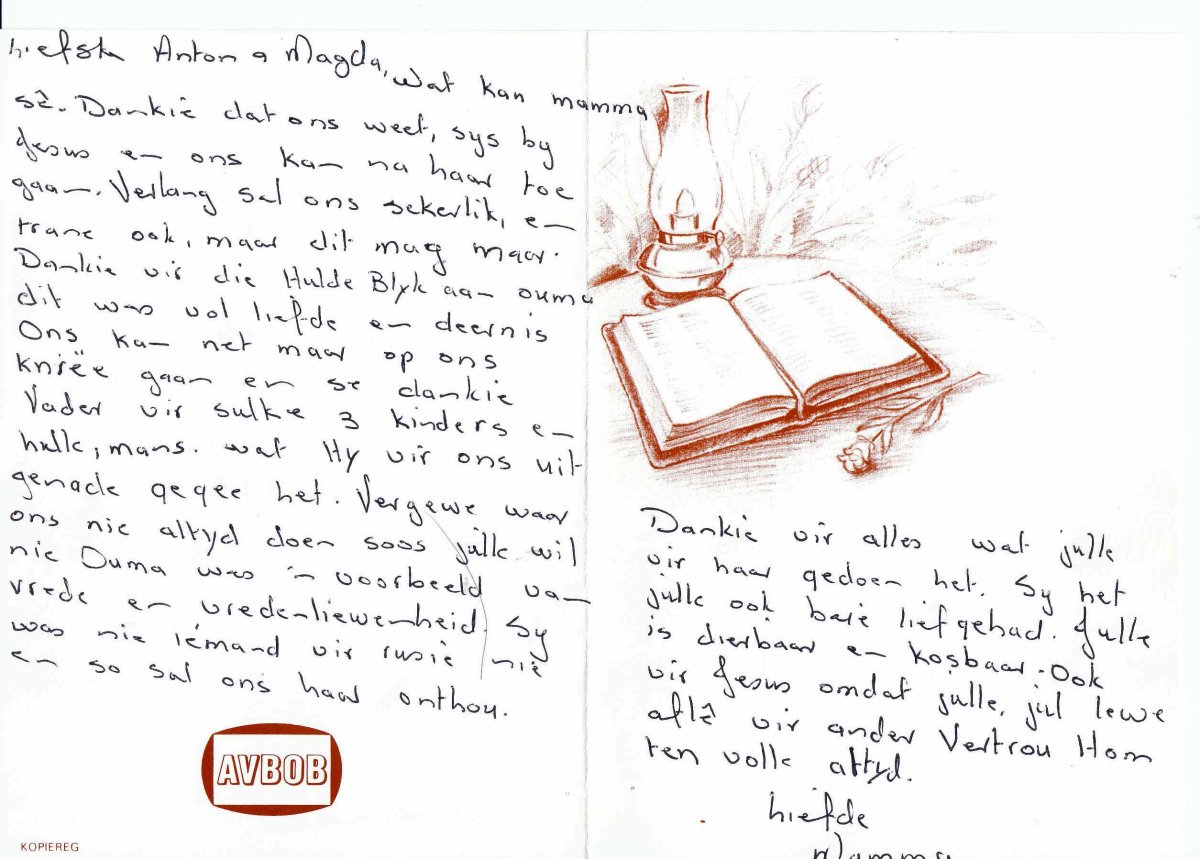 Liefste Anton & Magda, wat kan mamma
sê. Dankie dat ons weet, sys by
Jesus en ons kan na haar toe
gaan. Verlang sal ons sekerlik, en
trane ook, maar dit mag maar.
Dankie vir die Hulde Blyk aan ouma
dit was vol liefde en deernis
Ons kan net maar op ons
knieë gaan en se dankie
Vader vir sulke 3 kinders en
hulle, mans. wat Hy vir ons uit
genade gegee het. Vergewe waar
ons nie altyd doen soos julle wil
nie Ouma was 'n voorbeeld van
vrede en vredeliewenheid. Sy
was nie iémand vir rusie nie
en so sal ons haar onthou.
AVBOB
KOPIEREG
Dankie vir alles wat julle
vir haar gedoen het. Sy het
julle ook baie liefgehad. Julle
is dierbaar en kosbaar. Ook
vir Jesus omdat julle, jul lewe
aflê vir ander Vertrou Hom
ten volle altyd.
Liefde
Mamma